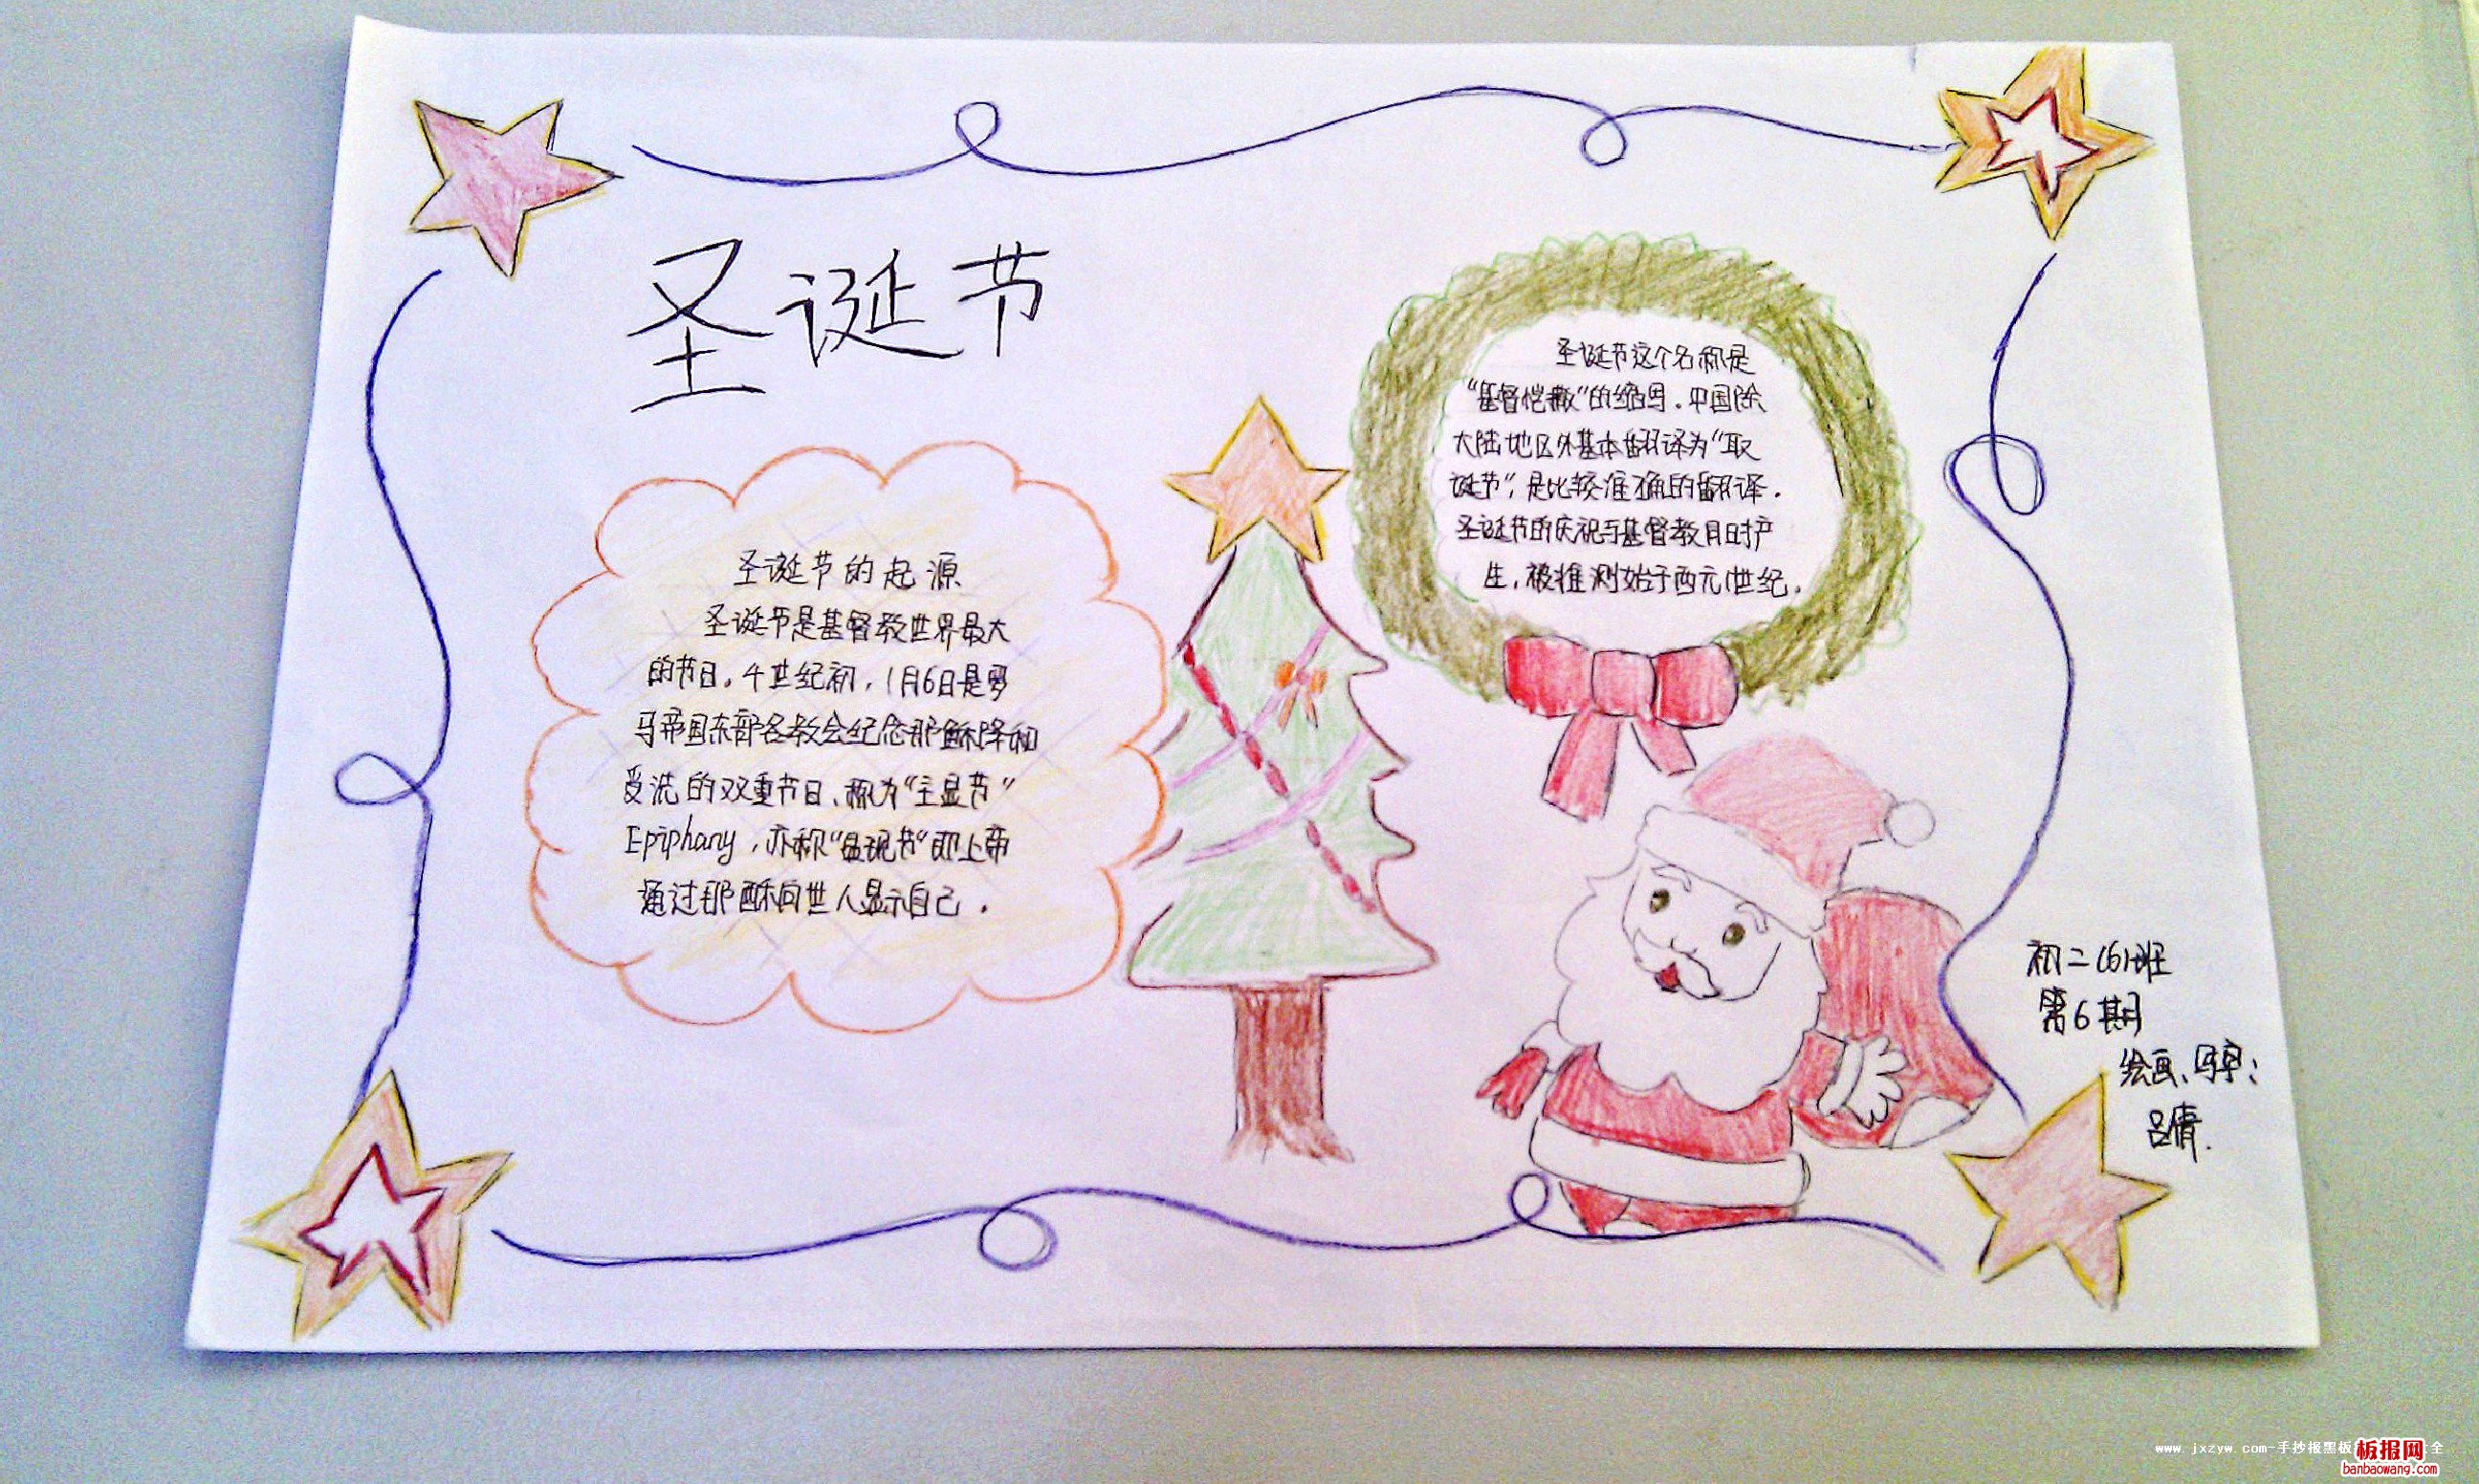 圣诞节
圣诞节的起源
圣诞节是基督教世界最大
的节日。4世纪初，1月6日是罗
马帝国东部各教会纪念耶稣降和
受洗的双重节日、称为“主显节”
Epiphany，亦称“显现节”即上帝
通过耶稣向世人显示自己。
圣诞节这个名称是
“基督弥撒”的缩写．中国除
大陆地区外基本翻译为“耶
诞节”，是比较准确的翻译．
圣诞节的庆祝与基督教同时产
生，被推测始于西元1世纪。
初二(6)班
第6期
绘画、写字：
吕倩．
www.jxzyw.com-手抄报黑板
全
板报网
banbaowang.com